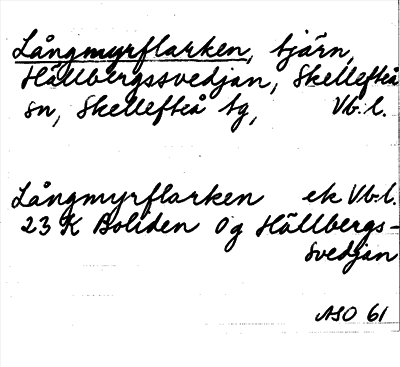 Långmyrflarken, tjärn,
Hällbergssvedjan, Skellefteå
sn, Skellefteå tg, Vb. l.
Långmyrflarken ek Vb. l.
23 K Boliden 0 g Hällbergs-
svedjan
ASO 61